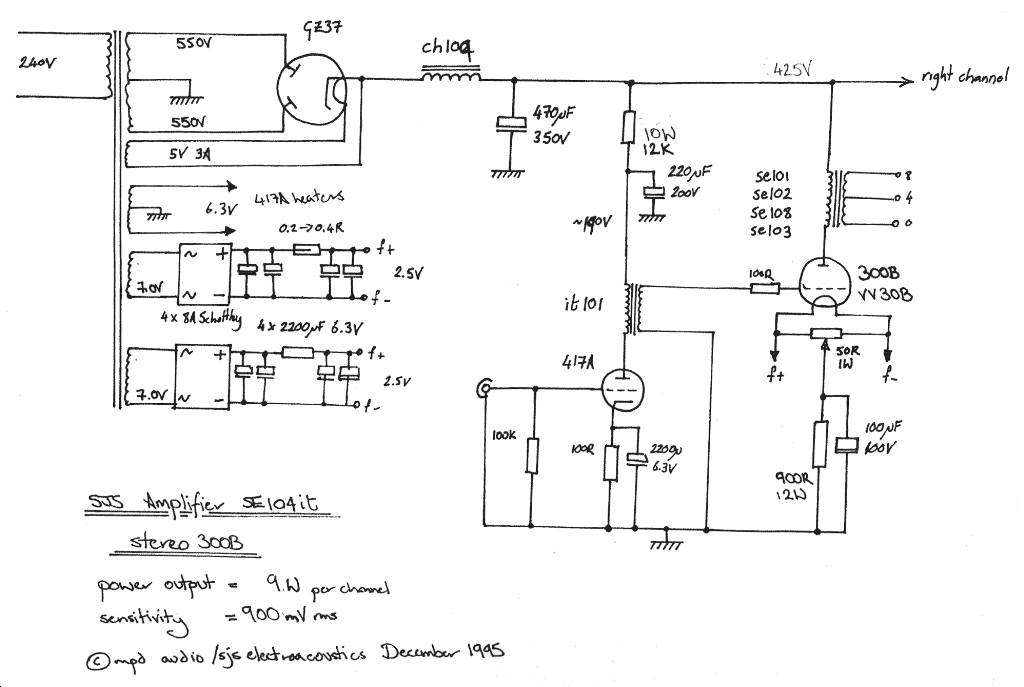 GZ37
550V
ch104
240V
425V
right channel
550V
470µF
350V
10W
12K
5V 3A
220µF
200V
se101
se102
se108
se103
8
4
0
6.3V
417A heaters
0.2→0.4R
~190V
f+
7.0V
~
~
+
-
2.5V
f-
100R
300B
VV30B
4 x 8A Schottky
4 x 2200µF 6.3V
it101
50R
1W
f+
f-
f+
417A
7.0V
~
~
+
-
2.5V
f-
100K
100R
2200µ
6.3V
100µF
100V
900R
12W
SJS Amplifier SE104it
stereo 300B
power output = 9.W per channel
sensitivity = 900 mV rms
© mpd audio /sjs electroacoustics December 1995